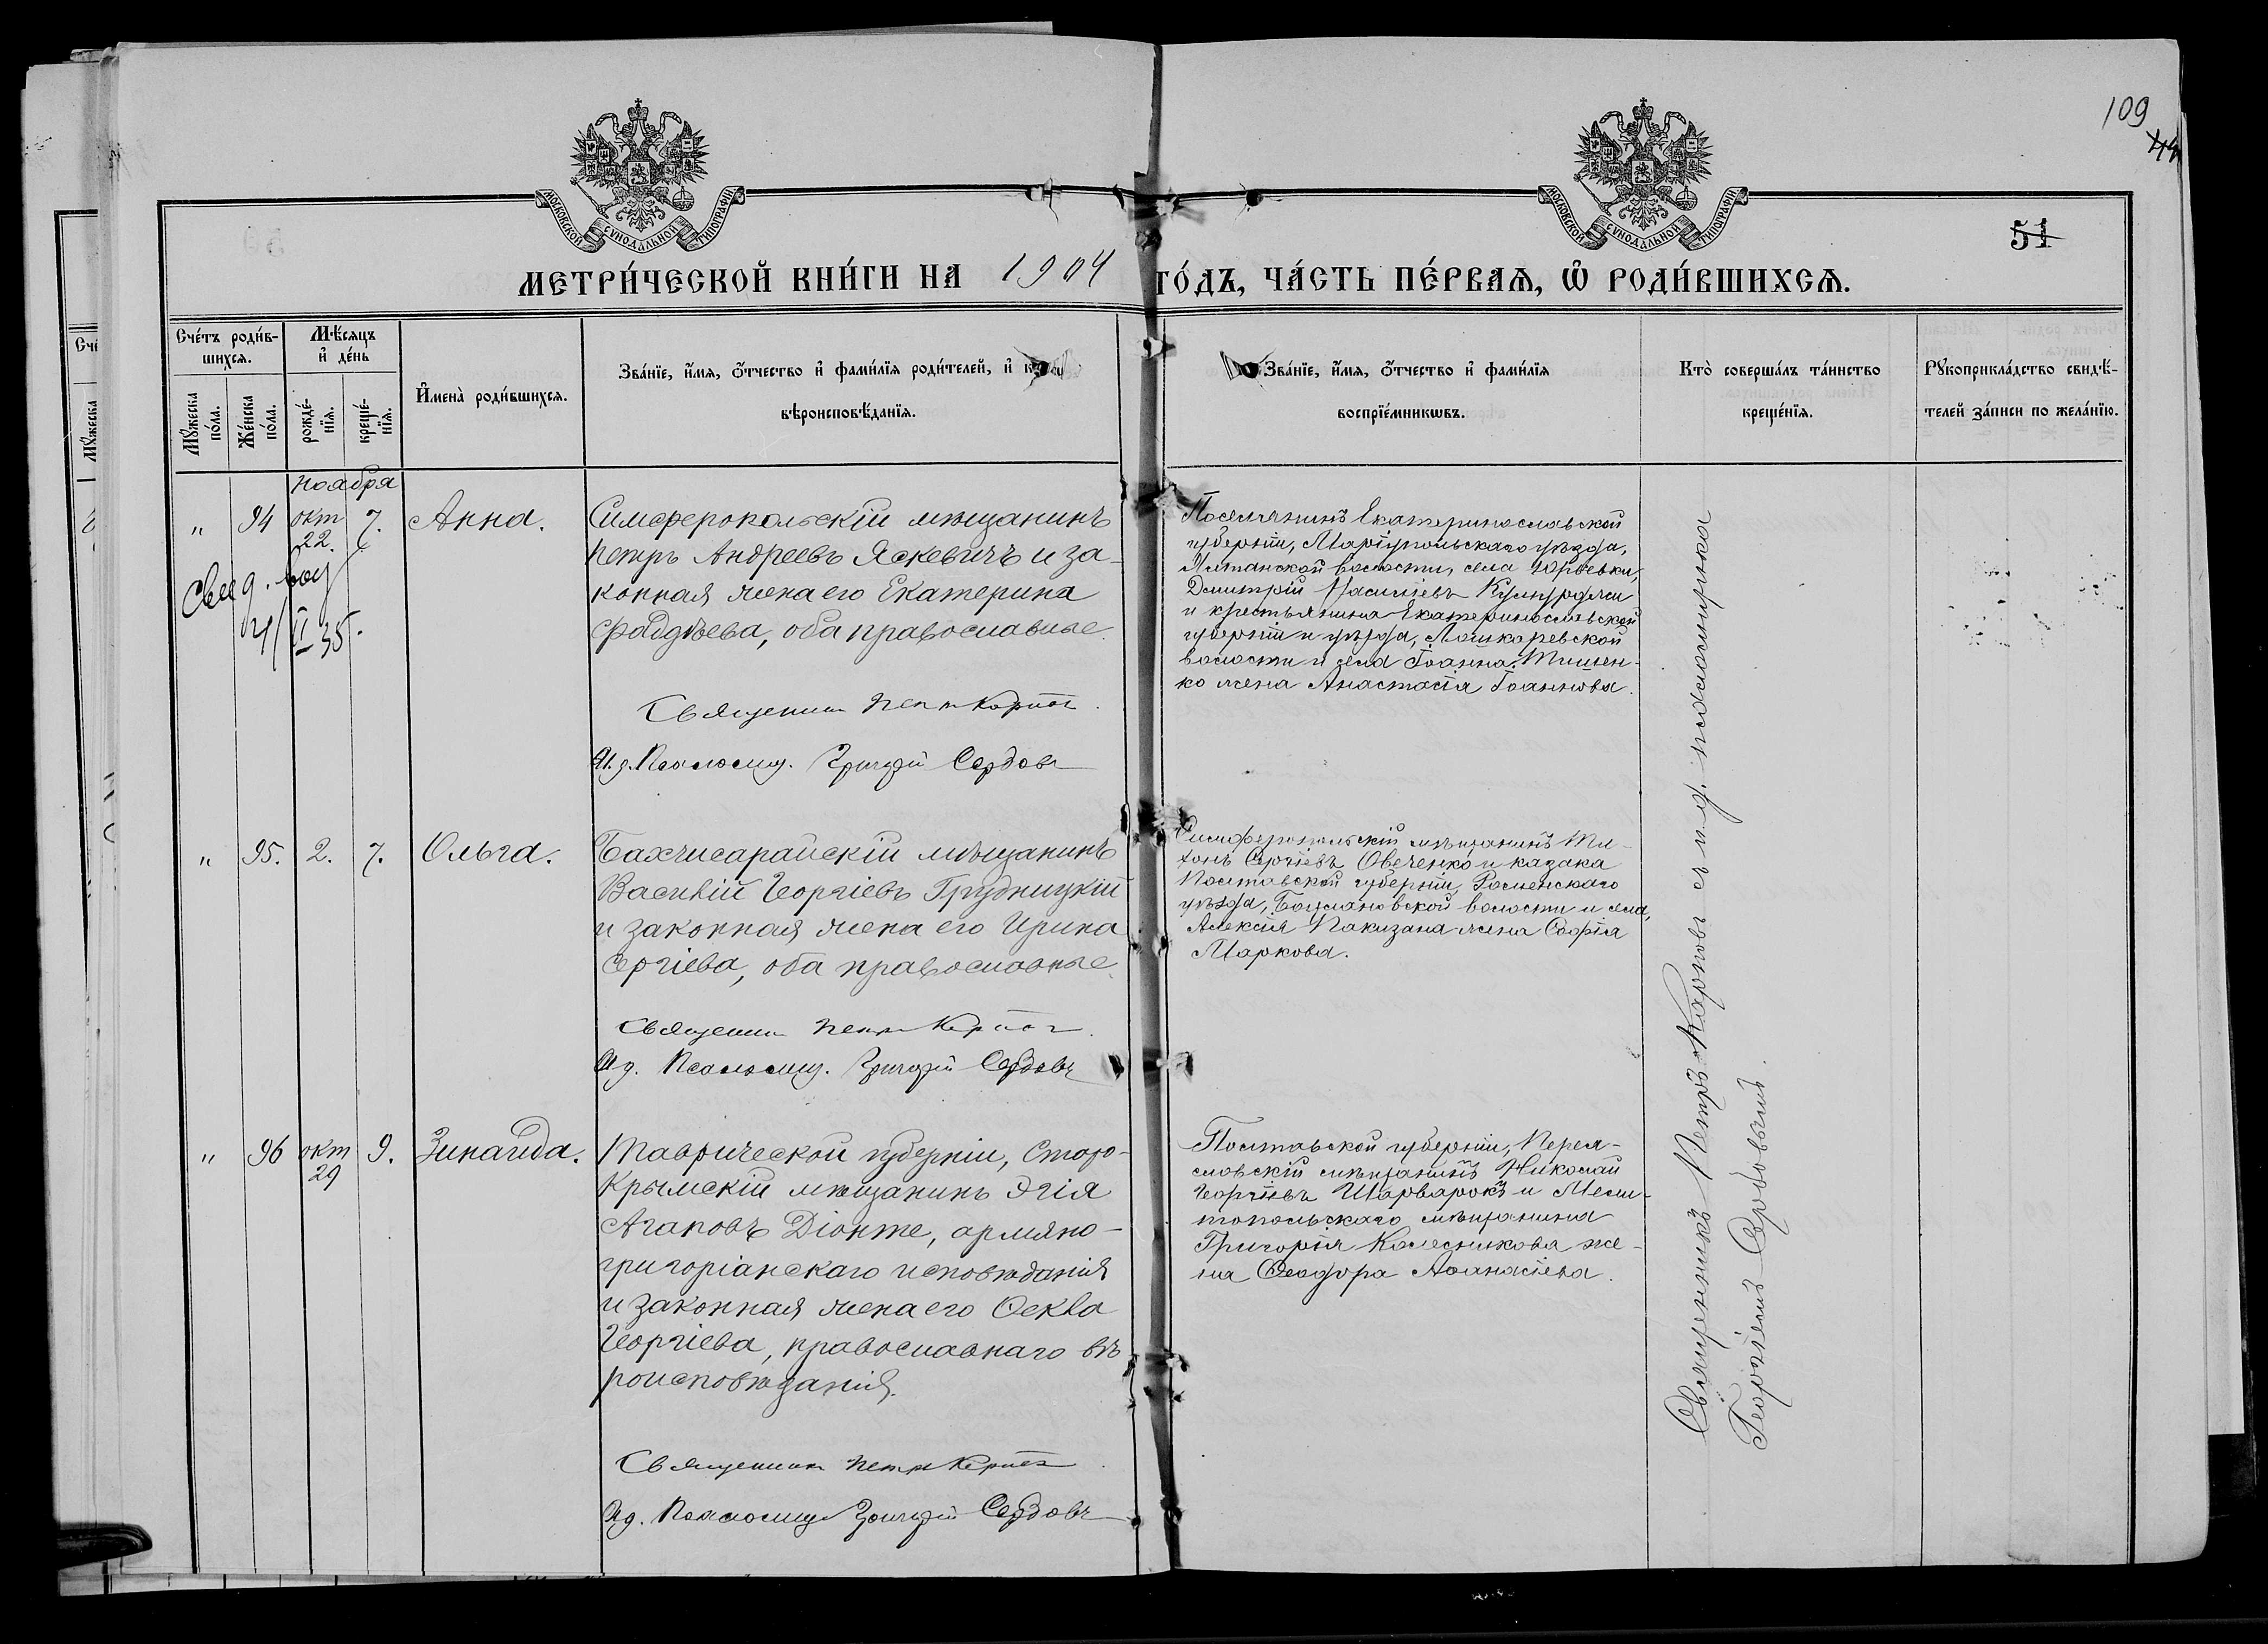 109
51
МОСКОВСКОЙ СУНОДАЛЬНОЙ ТИПОГРАФІИ
МОСКОВСКОЙ СУНОДАЛЬНОЙ ТИПОГРАФІИ
МЕТРИ́ЧЕСКОЙ КНИ́ГИ НА 1904 ГО́ДЪ, ЧА́СТЬ ПЕ́РВАЯ, Ѡ҆ РОДИ́ВШИХСЯ.
Сче́тъ роди́в-
шихся.
Мꙋ́жеска по́ла.
Же́нска по́ла.
Мѣ́сяцъ и҆ де́нь
рожде́-нїя.
креще́-нїя.
И҆мена̀ роди́вшихся.
Зва́нїе, и҆́мя, ѻ҆́тчество и҆ фами́лїя роди́телей, и҆
вѣроисповѣ́данїя.
Зва́нїе, и҆́мя, ѻ҆́тчество и҆ фами́лїя
воспрїе́мникѡвъ.
Кто̀ соверша́лъ та́инство
креще́нїя.
Рꙋкоприкла́дство свидѣ́-
телей за́писи по жела́нїю.
ноября
" 94 окт 22. 7. Анна.
Симферопольскій мѣщанинъ
Петръ Андреевъ Яскевичъ и за-
конная жена его Екатерина
Фаддѣева, оба православные.
Священникъ Петръ Карповъ.
И.д. Псаломщ. Сербовъ
Поселянинъ Екатеринославской
губерніи, Маріупольскаго уѣзда,
волости, села Юрьевки,
Димитрій
и крестьянина Екатеринославской
губерніи и уѣзда, Лошкаревской
волости и села Іоанна Тимен-
ко жена Анастасія Іоаннова.
" 95. 2. 7. Ольга.
Бахчисарайскій мѣщанинъ
Василій Георгіевъ Грудницкій
и законная жена его Ирина
Сергіева, оба православные.
Священникъ Петръ Карповъ.
И.д. Псаломщ. Сербовъ
Симферопольскій мѣщанинъ Ти-
хонъ Сергіевъ Овеченко и казака
Полтавской губерніи, Роменскаго
уѣзда, волости и села,
Алексія жена Софія
Маркова.
" 96 окт 29 9. Зинаида.
Таврической губерніи, Старо-
Крымскій мѣщанинъ Эгія
Агаповъ Діонте, армяно-
григоріанскаго исповѣданія
и законная жена его Ѳекла
Георгіева, православнаго вѣ
роисповѣданія.
Священникъ Петръ Карповъ.
И.д. Псаломщ. Сербовъ
Полтавской губерніи, Перея-
славскій мѣщанинъ Николай
Георгіевъ Шарварокъ и Мели-
топольскаго мѣщанина
Григорія Колесникова же-
на Ѳеодора Аѳанасіева.
Священникъ Петръ Карповъ съ и.д. псаломщика
Георгіемъ Сербовымъ.